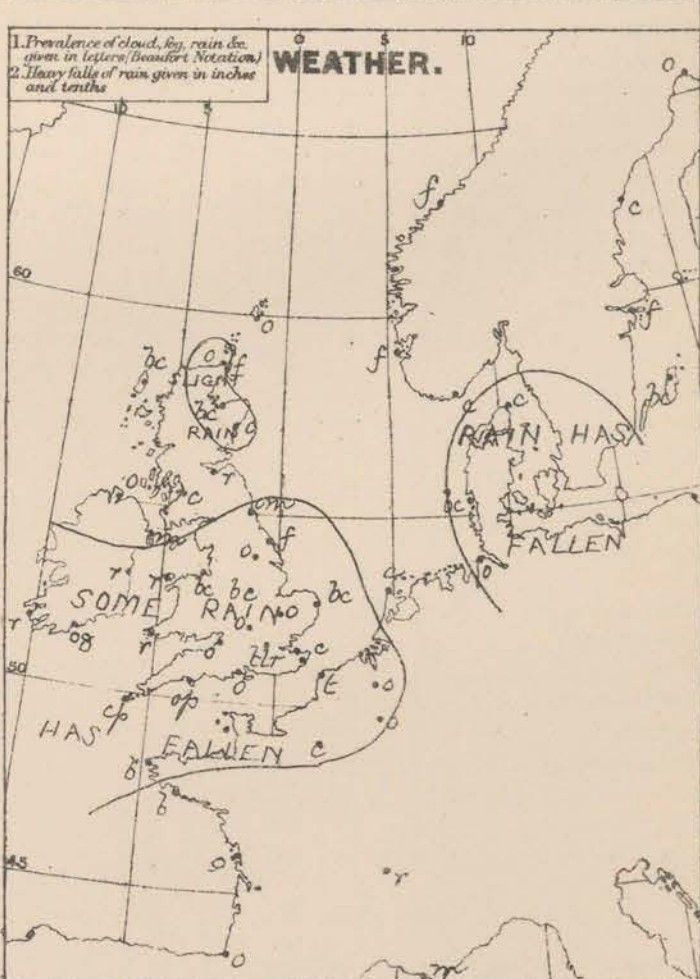 1. Prevalence of cloud, fog, rain &c.
given in letters (Beaufort Notation)
2. Heavy falls of rain given in inches
and tenths
WEATHER.
0 5 10
10 5
O
f
c
60
O
f
f
bc
O f
SLIGHT
bc
bc
c c
RAIN c
RAIN HAS
r
O c
bc
om
m
f
FALLEN
O
O
r r
bc bc
bc
c
SOME RAIN O
r
og
r
O
tlr c
50
O
t
O
cp
op
O
HAS
FALLEN
c
45
r
O
m